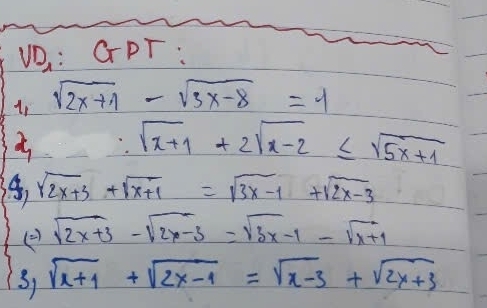 VD1: GPT:
1, √(2x+1) - √(3x-8) = 1
2, : √(x+1) + 2√(x-2) ≤ √(5x+1)
√(2x+3) + √(x+1) = √(3x-1) + √(2x-3)
(=) √(2x+3) - √(2x-3) = √(3x-1) - √(x+1)
3, √(x+1) + √(2x-1) = √(x-3) + √(2x+3)